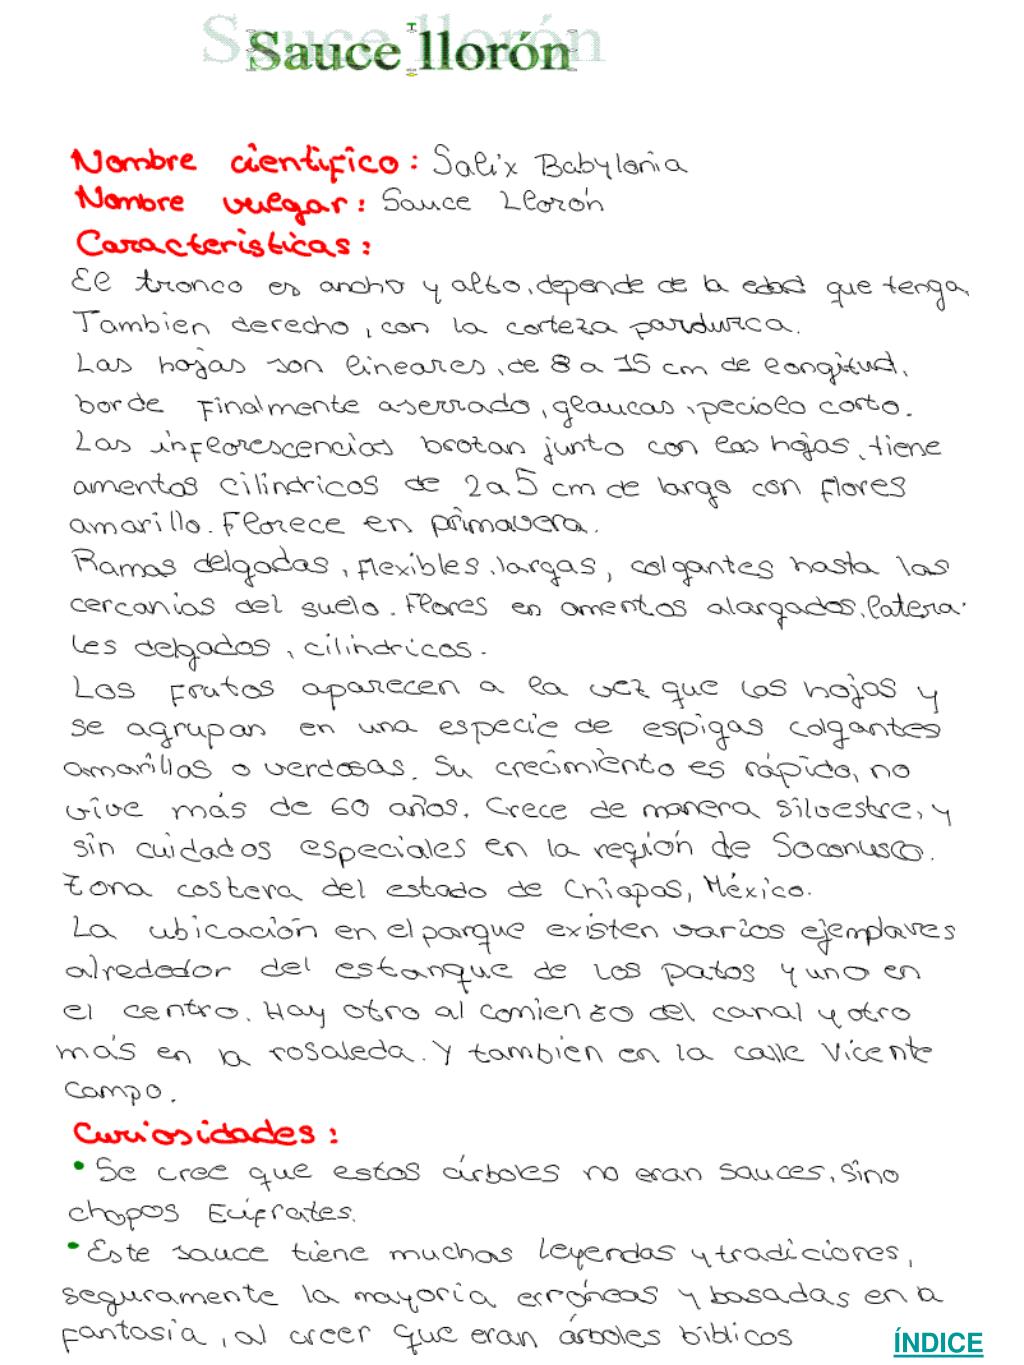 Sauce llorón
Nombre cientifico: Salix Babylonia
Nombre vulgar: Sauce Llorón
Caracteristicas:
El tronco es ancho y alto, depende de la edad que tenga,
Tambien derecho, con la corteza pardurica.
Las hojas son lineares, de 8 a 15 cm de longitud,
borde finalmente aserrado, glaucas, peciolo corto.
Las inflorescencias brotan junto con las hojas, tiene
amentos cilindricos de 2 a 5 cm de largo con flores
amarillo. Florece en primavera.
Ramas delgadas, flexibles, largas, colgantes hasta las
cercanias del suelo. Flores en amentos alargados, latera-
les delgados, cilindricos.
Los frutos aparecen a la vez que las hojas y
se agrupan en una especie de espigas colgantes
amarillas o verdosas. Su crecimiento es rápido, no
vive más de 60 años. Crece de manera silvestre, y
sin cuidados especiales en la región de Soconusco.
Zona costera del estado de Chiapas, México.
La ubicación en el parque existen varios ejemplares
alrededor del estanque de los patos y uno en
el centro. Hay otro al comienzo del canal y otro
más en la rosaleda. Y tambien en la calle Vicente
Campo.
Curiosidades:
• Se cree que estos árboles no eran sauces, sino
chopos Eúfrates.
• Este sauce tiene muchas leyendas y tradiciones,
seguramente la mayoria erróneas y basadas en la
fantasia, al creer que eran árboles biblicos
ÍNDICE